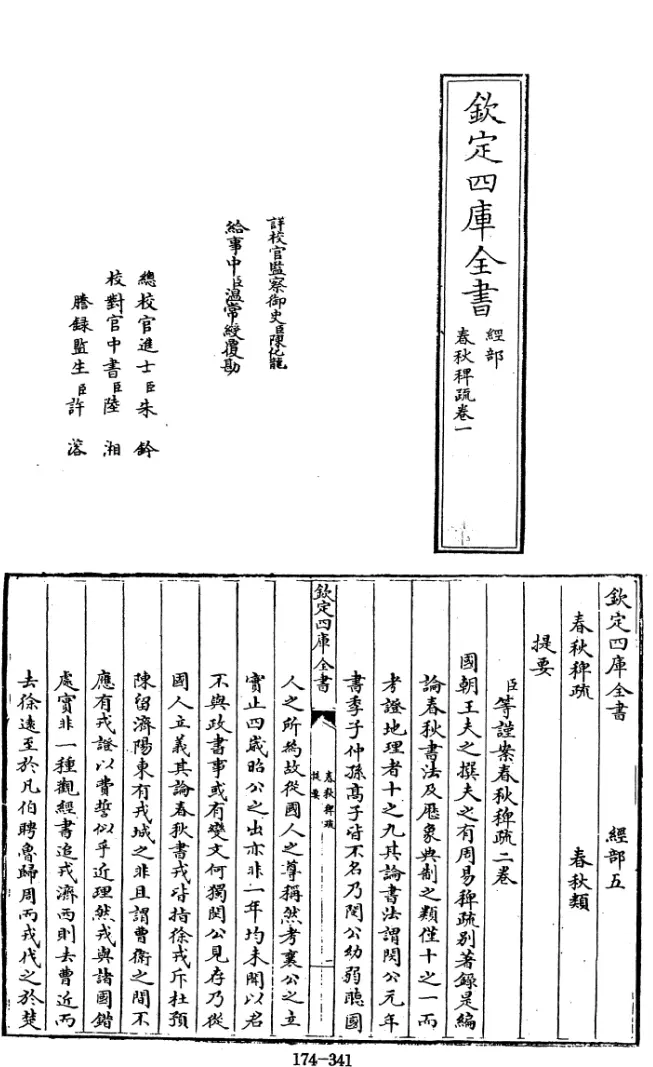 欽定四庫全書
經部
春秋稗疏卷一
詳校官監察御史臣陳化龍
給事中臣溫常綬覆勘
總校官進士臣朱鈐
校對官中書臣陸湘
謄錄監生臣許溶
欽定四庫全書 經部五
春秋稗疏 春秋類
提要
臣等謹案春秋稗疏二卷
國朝王夫之撰夫之有周易稗疏别著錄是編
論春秋書法及厯象典制之類僅十之一而
考證地理者十之九其論書法謂閔公元年
書季子仲孫高子皆不名乃閔公幼弱聽國
欽定四庫全書
春秋稗疏
提要
一
人之所為故從國人之尊稱然考襄公之立
實止四歲昭公之出亦非一年均未聞以君
不與政書事或有變文何獨閔公見存乃從
國人立義其論春秋書戎皆指徐戎斥杜預
陳留濟陽東有戎城之非且謂曹衛之間不
應有戎證以費誓似乎近理然戎與諸國錯
處實非一種觀經書追戎濟西則去曹近而
去徐遠至於凡伯聘魯歸周而戎伐之於楚
174-341